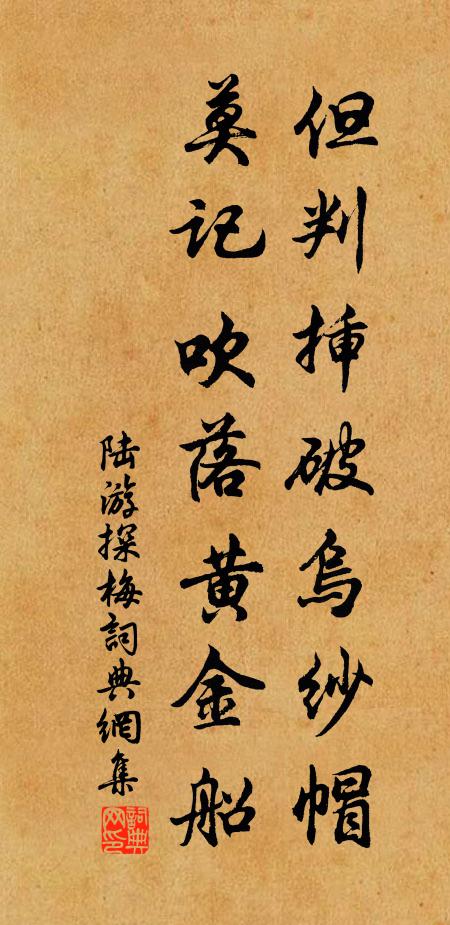 但判插破烏紗帽
莫记吹落黄金船
陆游探梅詞典網集
詞典
网印